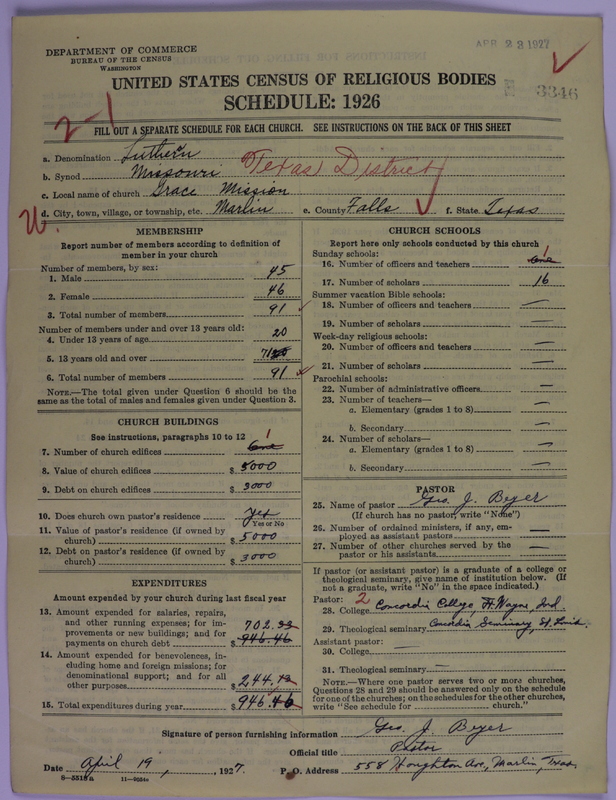 APR 23 1927
DEPARTMENT OF COMMERCE
BUREAU OF THE CENSUS
WASHINGTON
UNITED STATES CENSUS OF RELIGIOUS BODIES
SCHEDULE: 1926
3346
2-1
FILL OUT A SEPARATE SCHEDULE FOR EACH CHURCH. SEE INSTRUCTIONS ON THE BACK OF THIS SHEET
a. Denomination Luthern
b. Synod Missouri Texas District
c. Local name of church Grace Mission
d. City, town, village, or township, etc. Marlin e. County Falls f. State Texas
MEMBERSHIP
Report number of members according to definition of
member in your church
Number of members, by sex:
1. Male 45
2. Female 46
3. Total number of members 91
Number of members under and over 13 years old:
4. Under 13 years of age 20
5. 13 years old and over 71
6. Total number of members 91
NOTE.—The total given under Question 6 should be the
same as the total of males and females given under Question 3.
CHURCH BUILDINGS
See instructions, paragraphs 10 to 12
7. Number of church edifices One 1
8. Value of church edifices $ 5000
9. Debt on church edifices $ 3000
10. Does church own pastor's residence Yes
Yes or No
11. Value of pastor's residence (if owned by
church) $ 5000
12. Debt on pastor's residence (if owned by
church) $ 3000
EXPENDITURES
Amount expended by your church during last fiscal year
13. Amount expended for salaries, repairs,
and other running expenses; for im-
provements or new buildings; and for
payments on church debt 702.33
$ 946.46
14. Amount expended for benevolences, in-
cluding home and foreign missions; for
denominational support; and for all
other purposes $ 244.13
15. Total expenditures during year $ 946.46
CHURCH SCHOOLS
Report here only schools conducted by this church
Sunday schools:
16. Number of officers and teachers One 1
17. Number of scholars 16
Summer vacation Bible schools:
18. Number of officers and teachers —
19. Number of scholars —
Week-day religious schools:
20. Number of officers and teachers —
21. Number of scholars —
Parochial schools:
22. Number of administrative officers —
23. Number of teachers—
a. Elementary (grades 1 to 8) —
b. Secondary —
24. Number of scholars—
a. Elementary (grades 1 to 8) —
b. Secondary —
PASTOR
25. Name of pastor Geo. J. Beyer
(If church has no pastor, write "None")
26. Number of ordained ministers, if any, em-
ployed as assistant pastors —
27. Number of other churches served by the
pastor or his assistants —
If pastor (or assistant pastor) is a graduate of a college or
theological seminary, give name of institution below. (If
not a graduate, write "No" in the space indicated.)
Pastor: 2
28. College Concordia College, Ft. Wayne Ind.
29. Theological seminary Concordia Seminary, St. Louis.
Assistant pastor:
30. College —
31. Theological seminary —
NOTE.—Where one pastor serves two or more churches,
Questions 28 and 29 should be answered only on the schedule
for one of the churches; on the schedules for the other churches,
write "See schedule for church."
Signature of person furnishing information Geo. J. Beyer
Official title Pastor
Date April 19, 1927. P. O. Address 558 Houghton Ave, Marlin, Texas.